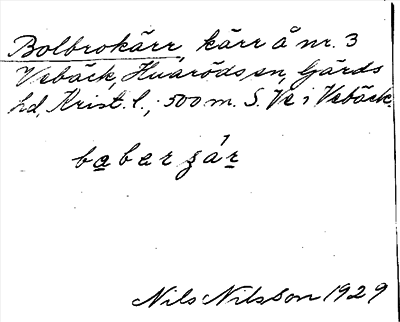 Bolbrokärr, kärr å nr. 3
Vebäck, Huaröds sn, Gärds
hd, Krist. l., 500 m. S. Ve i Vebäck.
Nils Nilsson 1929